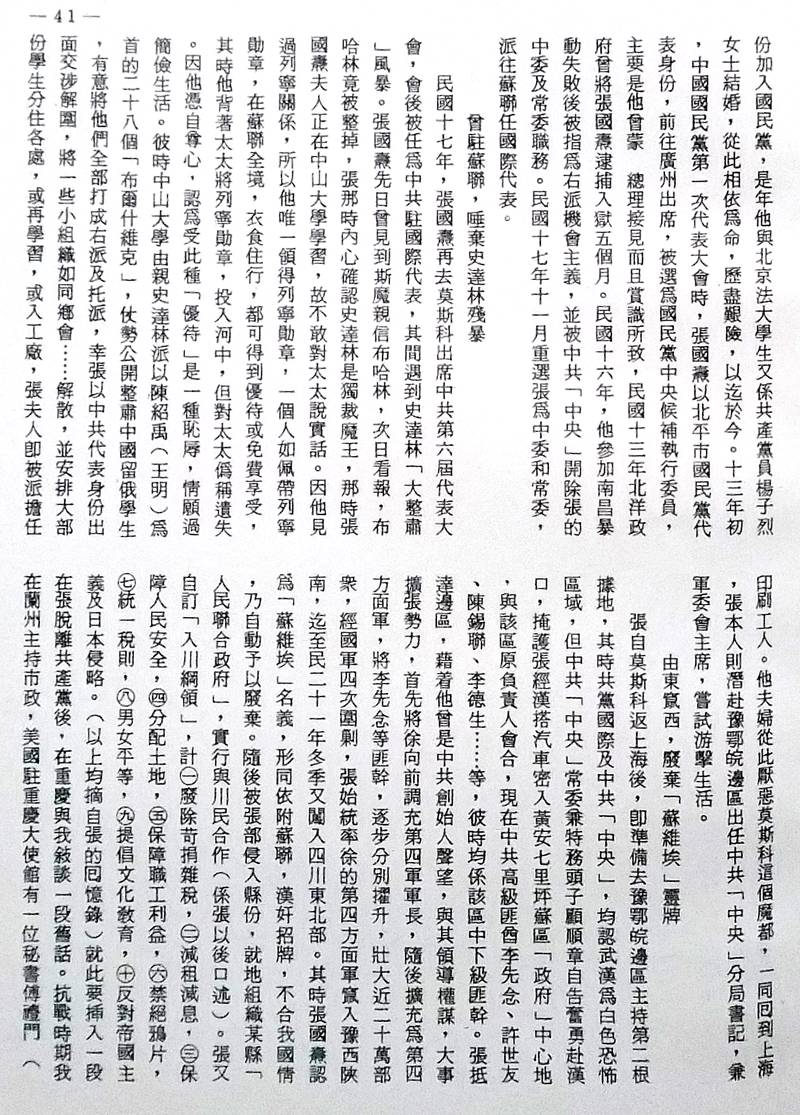 — 41 —
份加入國民黨，是年他與北京法大學生又係共產黨員楊子烈
女士結婚，從此相依為命，歷盡艱險，以迄於今。十三年初
，中國國民黨第一次代表大會時，張國燾以北平市國民黨代
表身份，前往廣州出席，被選為國民黨中央候補執行委員，
主要是他曾蒙　總理接見而且賞識所致，民國十三年北洋政
府曾將張國燾逮捕入獄五個月。民國十六年，他參加南昌暴
動失敗後被指為右派機會主義，並被中共「中央」開除張的
中委及常委職務。民國十七年十一月重選張為中委和常委，
派往蘇聯任國際代表。
曾駐蘇聯，唾棄史達林殘暴
民國十七年，張國燾再去莫斯科出席中共第六屆代表大
會，會後被任為中共駐國際代表，其間遇到史達林「大整肅
」風暴。張國燾先日曾見到斯魔親信布哈林，次日看報，布
哈林竟被整掉，張那時內心確認史達林是獨裁魔王，那時張
國燾夫人正在中山大學學習，故不敢對太太說實話。因他見
過列寧關係，所以他唯一領得列寧勛章，一個人如佩帶列寧
勛章，在蘇聯全境，衣食住行，都可得到優待或免費享受，
其時他背著太太將列寧勛章，投入河中，但對太太僞稱遺失
。因他憑自尊心，認為受此種「優待」是一種恥辱，情願過
簡儉生活。彼時中山大學由親史達林派以陳紹禹（王明）為
首的二十八個「布爾什維克」，仗勢公開整肅中國留俄學生
，有意將他們全部打成右派及托派，幸張以中共代表身份出
面交涉解圍，將一些小組織如同鄉會……解散，並安排大部
份學生分住各處，或再學習，或入工廠，張夫人卽被派擔任
印刷工人。他夫婦從此厭惡莫斯科這個魔都，一同囘到上海
，張本人則潛赴豫鄂皖邊區出任中共「中央」分局書記，兼
軍委會主席，嘗試游擊生活。
由東竄西，廢棄「蘇維埃」靈牌
張自莫斯科返上海後，卽準備去豫鄂皖邊區主持第二根
據地，其時共黨國際及中共「中央」，均認武漢為白色恐怖
區域，但中共「中央」常委兼特務頭子顧順章自告奮勇赴漢
口，掩護張經漢搭汽車密入黃安七里坪蘇區「政府」中心地
，與該區原負責人會合，現在中共高級匪酋李先念、許世友
、陳錫聯、李德生……等，彼時均係該區中下級匪幹。張抵
達邊區，藉着他曾是中共創始人聲望，與其領導權謀，大事
擴張勢力，首先將徐向前調充第四軍軍長，隨後擴充為第四
方面軍，將李先念等匪幹，逐步分別擢升，壯大近二十萬部
衆，經國軍四次圍剿，張始統率徐的第四方面軍竄入豫西陝
南，迄至民二十一年冬季又闖入四川東北部。其時張國燾認
為「蘇維埃」名義，形同依附蘇聯，漢奸招牌，不合我國情
，乃自動予以廢棄。隨後被張部侵入縣份，就地組織某縣「
人民聯合政府」，實行與川民合作（係張以後口述）。張又
自訂「入川綱領」，計㊀廢除苛捐雜稅，㊁減租減息，㊂保
障人民安全，㊃分配土地，㊄保障職工利益，㊅禁絕鴉片，
㊆統一稅則，㊇男女平等，㊈提倡文化敎育，㊉反對帝國主
義及日本侵略。（以上均摘自張的囘憶錄）就此要插入一段
在張脫離共產黨後，在重慶與我敍談一段舊話。抗戰時期我
在蘭州主持市政，美國駐重慶大使館有一位秘書傅禮門（